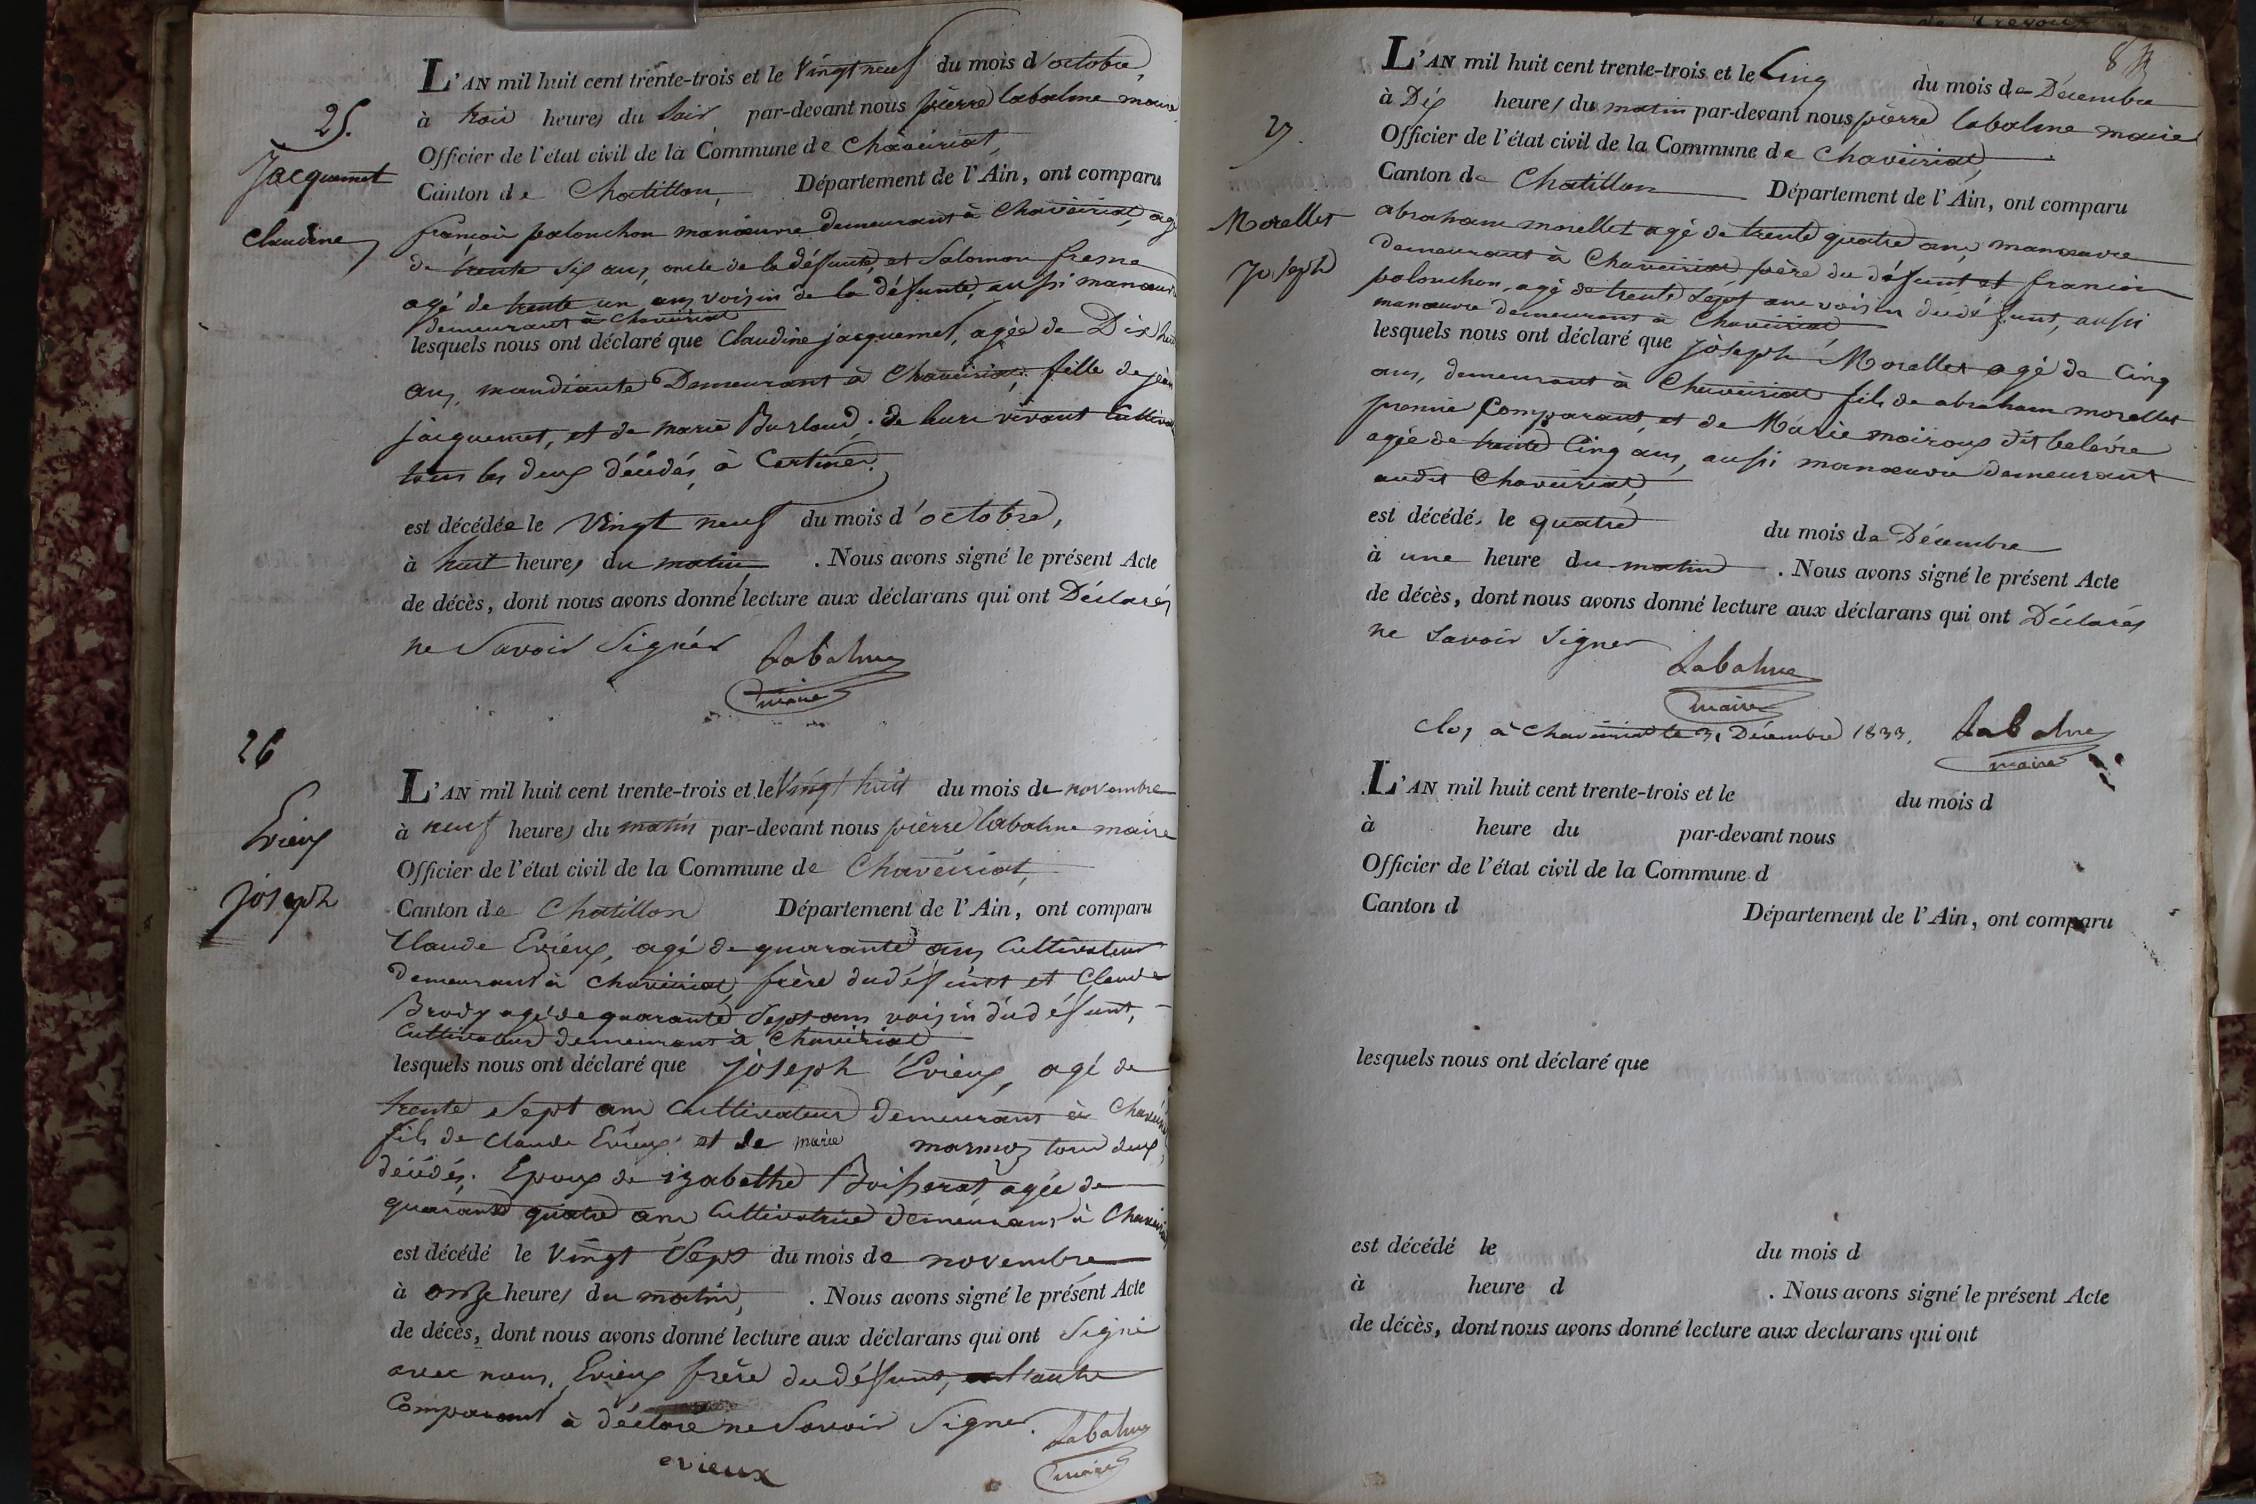 25.
Jacquemet
Claudine
L'AN mil huit cent trente-trois et le Vingt neuf du mois d'octobre,
à trois heures du soir par-devant nous pierre labalme maire
Officier de l'état civil de la Commune de Chaveiriat,
Canton de Chatillon, Département de l'Ain, ont comparu
francois polonchon manœuvre demeurant à Chaveiriat, agé
de trente six ans, oncle de la défunte, et Salomon fresne
agé de trente un ans voisin de la défunte, aussi manœuvre
demeurant à Chaveiriat
lesquels nous ont déclaré que Claudine jacquemet, agée de Dix huit
ans, mandiante Demeurant à Chaveiriat, fille de jean
jacquemet, et de marie Burloud, de leur vivant Cultiva
tous les deux décédés, à Certines.
est décédée le Vingt neuf du mois d'octobre,
à huit heures du matin, . Nous avons signé le présent Acte
de décès, dont nous avons donné lecture aux déclarans qui ont Déclarés
ne Savoir Signér Labalme
maire
26
Evieux
joseph
L'AN mil huit cent trente-trois et le Vingt huit du mois de novembre
à neuf heures du matin par-devant nous pierre labalme maire
Officier de l'état civil de la Commune de Chaveiriat,
Canton de Chatillon Département de l'Ain, ont comparu
Claude Evieux, agé de quarante ans Cultivateur
demeurant à Chaveiriat, frère du défunt et Claude
Brody agé de quarante sept ans voisin du défunt,
Cultivateur demeurant à Chaveiriat
lesquels nous ont déclaré que joseph Evieux, agé de
trente Sept ans Cultivateur demeurant à Chaveiriat
fils de Claude Evieux et de marie marmoz tous deux
décédés. Epoux de izabethe Boisserat, agée de
quarante quatre ans Cultivatrice demeurant à Chaveiriat
est décédé le Vingt Sept du mois de novembre
à onze heures du matin, . Nous avons signé le présent Acte
de décès, dont nous avons donné lecture aux déclarans qui ont Signé
avec nous, Evieux frère du défunt, l'autre
Comparant à déclaré ne Savoir Signer. Labalme
evieux maire
27.
Morellet
Joseph
L'AN mil huit cent trente-trois et le Cinq du mois de Décembre
à Dix heures du matin par-devant nous pierre labalme maire
Officier de l'état civil de la Commune de Chaveiriat,
Canton de Chatillon Département de l'Ain, ont comparu
abraham morellet agé de trente quatre ans, manœuvre
demeurant à Chaveiriat père du défunt et francois
polonchon, agé de trente Sept ans voisin du défunt, aussi
manœuvre demeurant à Chaveiriat
lesquels nous ont déclaré que joseph Morellet agé de Cinq
ans, demeurant à Chaveiriat fils de abraham morellet
premie Comparant, et de Marie moiroux dit belevre
agée de trente Cinq ans, aussi manœuvre demeurant
audit Chaveiriat,
est décédé le quatre du mois de Décembre
à une heure du matin . Nous avons signé le présent Acte
de décès, dont nous avons donné lecture aux déclarans qui ont Déclarés
ne Savoir Signer Labalme
maire
Clos à Chaveiriat le 31 Décembre 1833. Labalme
maire
L'AN mil huit cent trente-trois et le du mois d
à heure du par-devant nous
Officier de l'état civil de la Commune d
Canton d Département de l'Ain, ont comparu
lesquels nous ont déclaré que
est décédé le du mois d
à heure d . Nous avons signé le présent Acte
de décès, dont nous avons donné lecture aux declarans qui ont